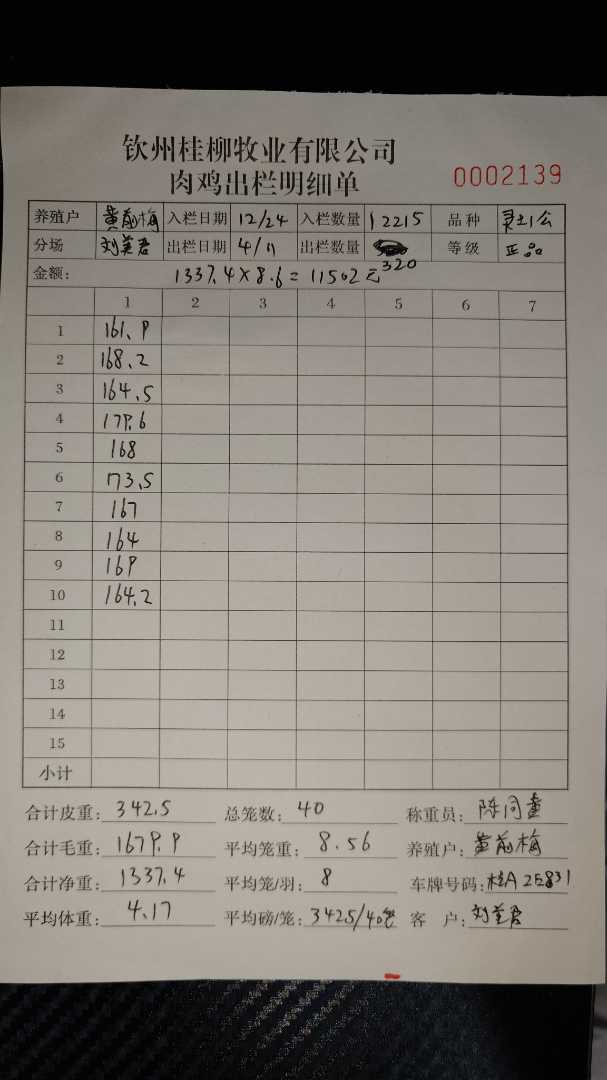 钦州桂柳牧业有限公司
肉鸡出栏明细单
0002139
养殖户 黄前梅 入栏日期 12/24 入栏数量 12215 品种 灵土1公
分场 刘美君 出栏日期 4/11 出栏数量 320 等级 正品
金额: 1337.4×8.6=11502元
1 2 3 4 5 6 7
1 161.9
2 168.2
3 164.5
4 179.6
5 168
6 173.5
7 167
8 164
9 169
10 164.2
11
12
13
14
15
小计
合计皮重: 342.5 总笼数: 40 称重员: 陈同
合计毛重: 1679.9 平均笼重: 8.56 养殖户: 黄前梅
合计净重: 1337.4 平均笼/羽: 8 车牌号码: 桂A 2E831
平均体重: 4.17 平均磅/笼: 342.5/40 客 户: 刘美君